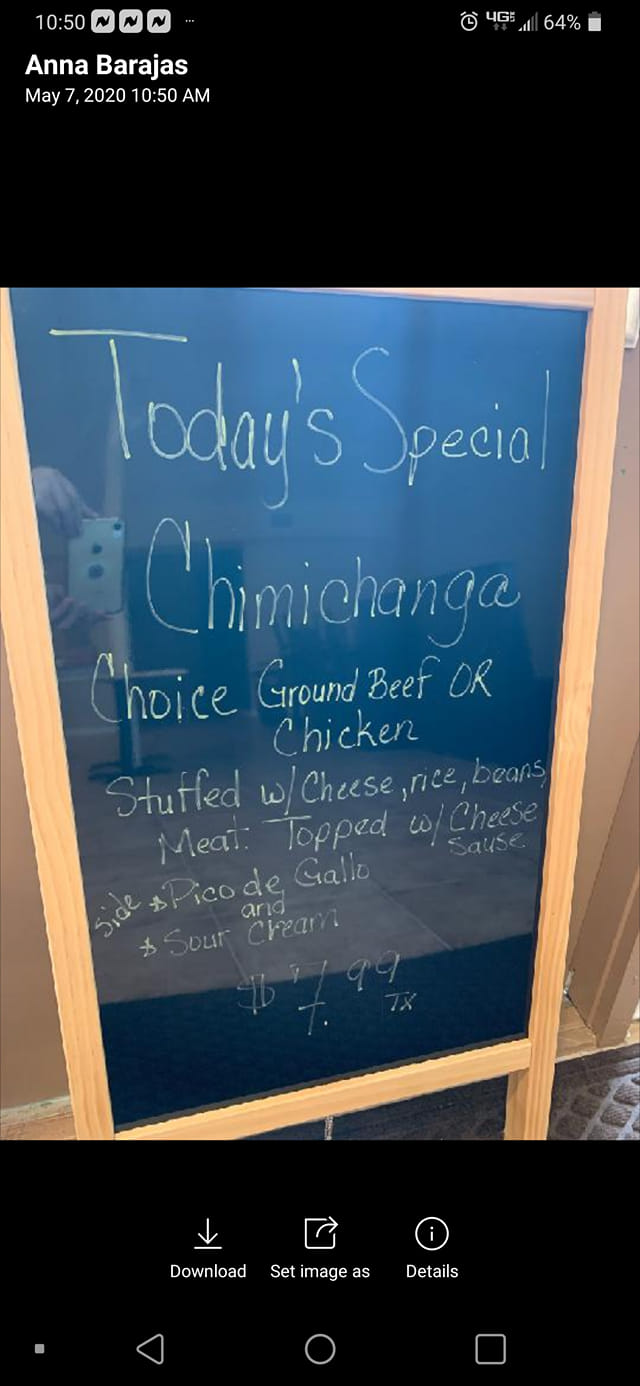 10:50 ... 4G 64%
Anna Barajas
May 7, 2020 10:50 AM
Today's Special
Chimichanga
Choice Ground Beef OR
Chicken
Stuffed w/ Cheese, rice, beans,
Meat. Topped w/ Cheese
Sause
Side * Pico de Gallo
and
* Sour Cream
$ 7.99
TX
Download Set image as Details